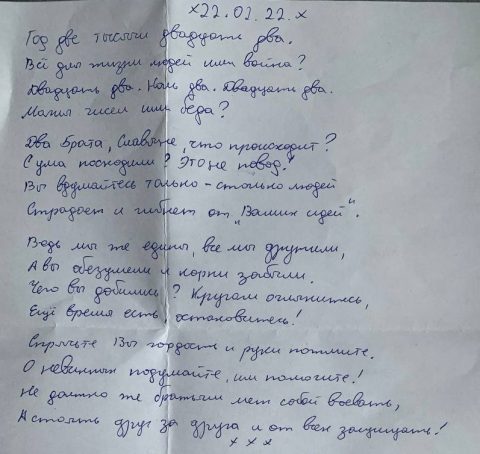 x22.02.22.x
Год две тысячи двадцать два.
Всё для жизни людей или война?
Двадцать два. Ноль два. Двадцать два.
Магия чисел или беда?
Два Брата, Славяне, что происходит?
С ума посходили? Это не повод!
Вы вдумайтесь только - столько людей
Страдает и гибнет от "Ваших идей".
Ведь мы же едины, все мы дружили,
А вы обезумели и корни забыли.
Чего вы добились? Кругом оглянитесь,
Ещё время есть, остановитесь!
Спрячьте Вы гордость и руки пожмите.
О невинных подумайте, им помогите!
Не должно же братьям меж собой воевать,
А стоять друг за друга и от всех защищать!
x x x